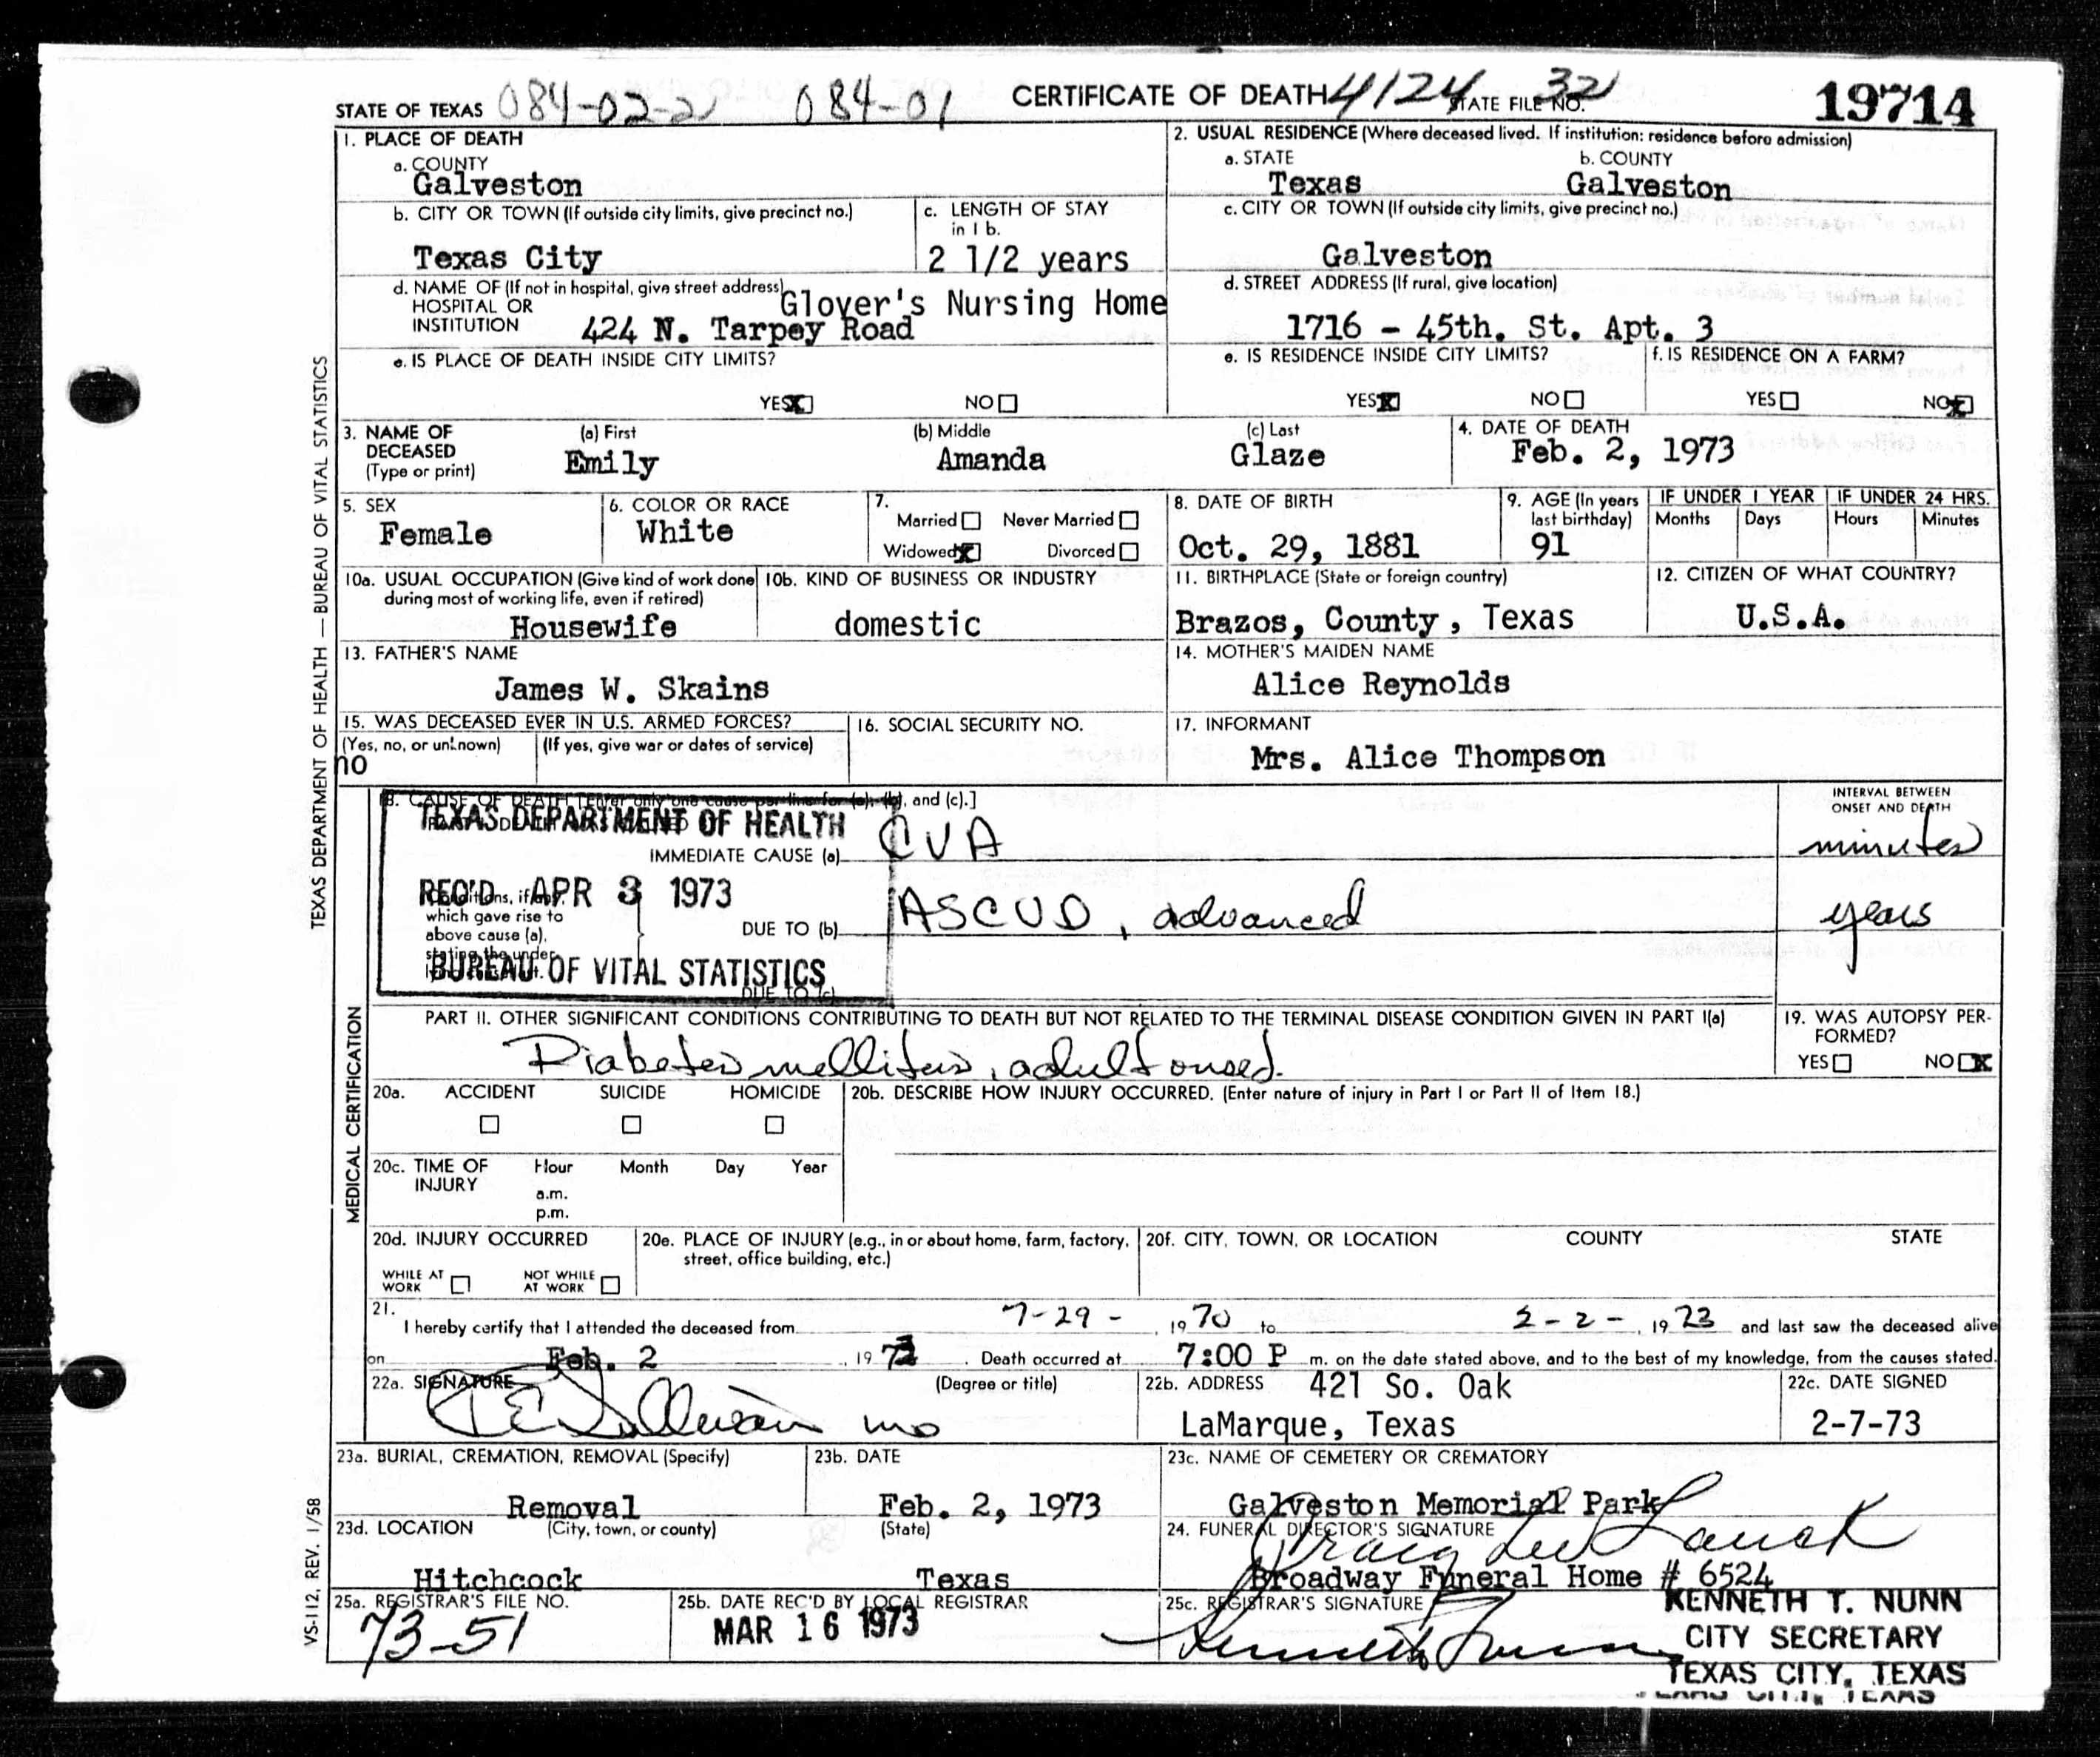 STATE OF TEXAS 084-02-21 084-01 CERTIFICATE OF DEATH 4124 STATE FILE NO. 32 19714
1. PLACE OF DEATH
a. COUNTY
Galveston
2. USUAL RESIDENCE (Where deceased lived. If institution: residence before admission)
a. STATE b. COUNTY
Texas Galveston
b. CITY OR TOWN (If outside city limits, give precinct no.)
Texas City
c. LENGTH OF STAY
in 1 b.
2 1/2 years
c. CITY OR TOWN (If outside city limits, give precinct no.)
Galveston
d. NAME OF (If not in hospital, give street address)
HOSPITAL OR
INSTITUTION
Glover's Nursing Home
424 N. Tarpey Road
d. STREET ADDRESS (If rural, give location)
1716 - 45th. St. Apt. 3
e. IS PLACE OF DEATH INSIDE CITY LIMITS?
YES X NO
e. IS RESIDENCE INSIDE CITY LIMITS?
YES X NO
f. IS RESIDENCE ON A FARM?
YES NO X
3. NAME OF
DECEASED
(Type or print)
(a) First (b) Middle (c) Last
Emily Amanda Glaze
4. DATE OF DEATH
Feb. 2, 1973
5. SEX
Female
6. COLOR OR RACE
White
7.
Married Never Married
Widowed X Divorced
8. DATE OF BIRTH
Oct. 29, 1881
9. AGE (In years
last birthday)
91
IF UNDER 1 YEAR IF UNDER 24 HRS.
Months Days Hours Minutes
10a. USUAL OCCUPATION (Give kind of work done
during most of working life, even if retired)
Housewife
10b. KIND OF BUSINESS OR INDUSTRY
domestic
11. BIRTHPLACE (State or foreign country)
Brazos, County, Texas
12. CITIZEN OF WHAT COUNTRY?
U.S.A.
13. FATHER'S NAME
James W. Skains
14. MOTHER'S MAIDEN NAME
Alice Reynolds
15. WAS DECEASED EVER IN U.S. ARMED FORCES?
(Yes, no, or unknown) (If yes, give war or dates of service)
no
16. SOCIAL SECURITY NO.
17. INFORMANT
Mrs. Alice Thompson
18. CAUSE OF DEATH [Enter only one cause per line for (a), (b), and (c).]
INTERVAL BETWEEN
ONSET AND DEATH
TEXAS DEPARTMENT OF HEALTH
REC'D APR 3 1973
BUREAU OF VITAL STATISTICS
IMMEDIATE CAUSE (a) CVA minutes
Conditions, if any,
which gave rise to
above cause (a),
stating the under-
lying cause last.
DUE TO (b) ASCVD, advanced years
DUE TO (c)
PART II. OTHER SIGNIFICANT CONDITIONS CONTRIBUTING TO DEATH BUT NOT RELATED TO THE TERMINAL DISEASE CONDITION GIVEN IN PART I(a)
Diabetes mellitus, adult onset.
19. WAS AUTOPSY PER-
FORMED?
YES NO X
20a. ACCIDENT SUICIDE HOMICIDE
20b. DESCRIBE HOW INJURY OCCURRED. (Enter nature of injury in Part I or Part II of Item 18.)
20c. TIME OF
INJURY
Hour Month Day Year
a.m.
p.m.
20d. INJURY OCCURRED
WHILE AT
WORK
NOT WHILE
AT WORK
20e. PLACE OF INJURY (e.g., in or about home, farm, factory,
street, office building, etc.)
20f. CITY, TOWN, OR LOCATION COUNTY STATE
21.
I hereby certify that I attended the deceased from 7-29- , 19 70 to 2-2- , 19 73 and last saw the deceased alive
on Feb. 2 , 19 73 . Death occurred at 7:00 P m. on the date stated above, and to the best of my knowledge, from the causes stated.
22a. SIGNATURE (Degree or title)
Sullivan MD
22b. ADDRESS 421 So. Oak
LaMarque, Texas
22c. DATE SIGNED
2-7-73
23a. BURIAL, CREMATION, REMOVAL (Specify)
Removal
23b. DATE
Feb. 2, 1973
23c. NAME OF CEMETERY OR CREMATORY
Galveston Memorial Park
23d. LOCATION (City, town, or county) (State)
Hitchcock Texas
24. FUNERAL DIRECTOR'S SIGNATURE
Lee
Broadway Funeral Home # 6524
25a. REGISTRAR'S FILE NO.
73-51
25b. DATE REC'D BY LOCAL REGISTRAR
MAR 16 1973
25c. REGISTRAR'S SIGNATURE
Kenneth T. Nunn
KENNETH T. NUNN
CITY SECRETARY
TEXAS CITY, TEXAS
TEXAS DEPARTMENT OF HEALTH — BUREAU OF VITAL STATISTICS
MEDICAL CERTIFICATION
VS-112, REV. 1/58